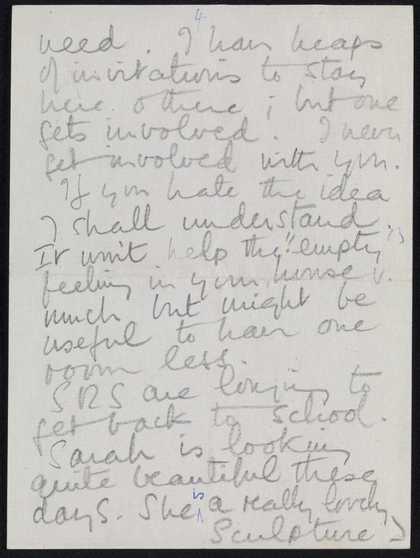 4.
need. I have heaps
of invitations to stay
here & there; but one
gets involved. I never
get involved with you.
If you hate the idea
I shall understand.
It won't help the "empty"
feeling in your house v.
much but might be
useful to have one
room less.
SRS are longing to
get back to school.
Sarah is looking
quite beautiful these
days. She is a really lovely
Sculpture